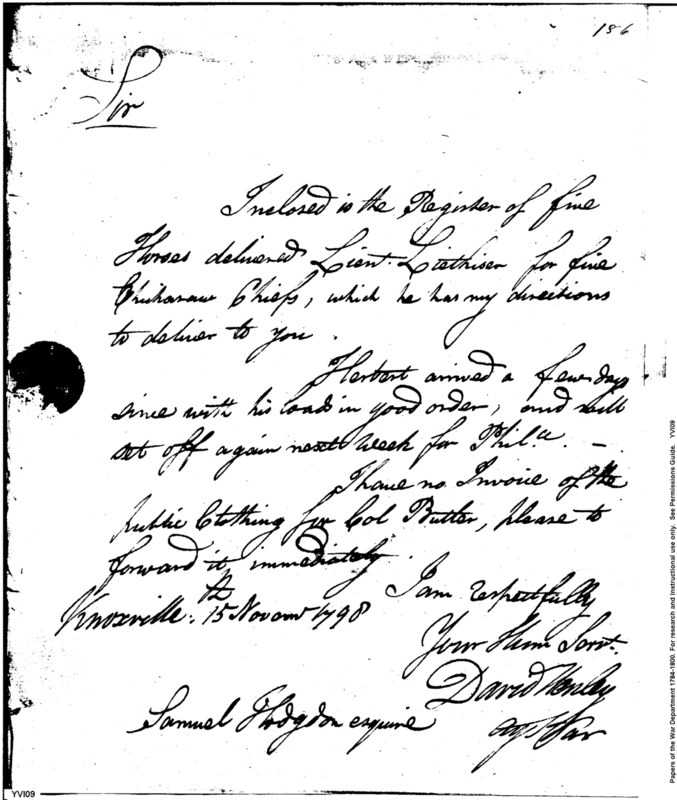 186
Sir
Inclosed is the Register of five
Horses delivered Lieut. Liethiser for five
Chickasaw Chiefs, which he has my directions
to deliver to you.
Herbert arrived a few days
since with his loads in good order, and will
set off again next week for Phila. —
I have no Invoice of the
public Clothing for Col Butler, please to
forward it immediately.
I am respectfully
Knoxville. 15th Novemr 1798
Your Hum Servt.
David Henley
agt War
Samuel Hodgdon esquire
Papers of the War Department 1784-1800. For research and instructional use only. See Permissions Guide. YVI09
YVI09